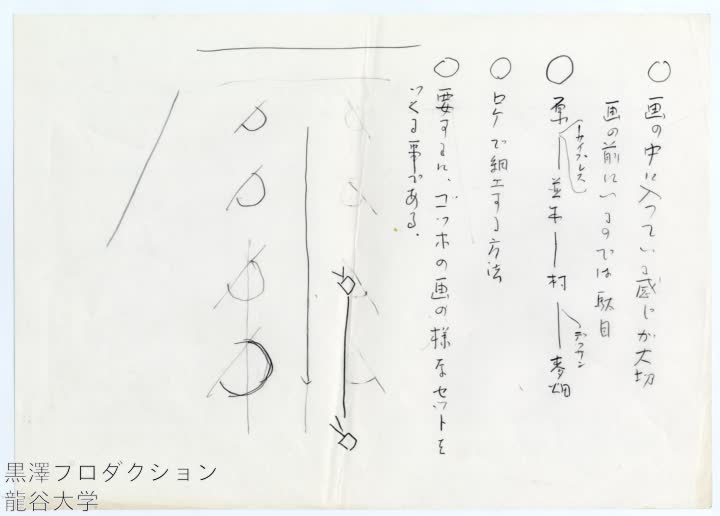 ○ 画の中に入っている感じが大切
画の前にいるのでは駄目
○ 原─並木─村─麦畑
サイプレス
デッサン
○ ロケで細工する方法
○ 要するに、ゴッホの画の様なセットを
つくる事である。
黒澤プロダクション
龍谷大学